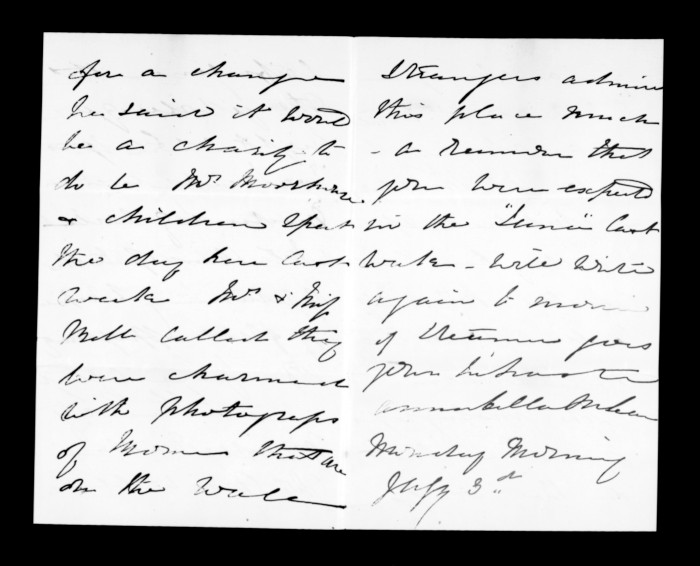 for a change
he said it would
be a charity to
do so Mrs Moorhouse
& children spent
the day here last
week Mrs & Miss
Bell called they
were charmed
with photograps
of Moms that are
on the walls
Strangers admire
this place much
- a rumour that
you were expected
in the "Luna" last
week - will write
again to morrow
if Steamer goes
your
Annabella McLean
Monday Morning
July 3rd